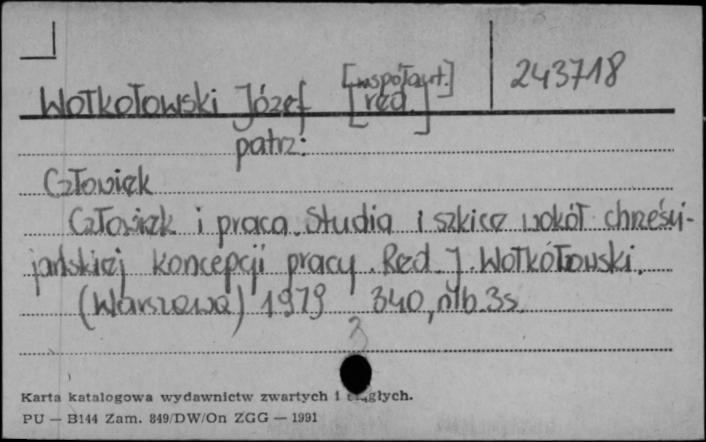 [współaut.] 243718
Wołkołowski Józef [red.]
patrz:
Człowiek
Człowiek i praca. Studia i szkice wokół chrześci-
jańskiej koncepcji pracy. Red. J. Wołkołowski.
(Warszawa) 1979 340, nlb. 3 s.
3
Karta katalogowa wydawnictw zwartych i ciągłych.
PU — B144 Zam. 849/DW/On ZGG — 1991